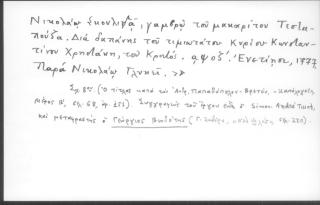 Νικολάῳ Σκουλιφᾷ, γαμβρῷ τοῦ μακαρίτου Τζετα-
πούζα. Διὰ δαπάνης τοῦ τιμιωτάτου Κυρίου Κωνσταν-
τίνου Χρηστάκη, τοῦ Κρητός. αψοδ΄. Ἐνετίησι, 1774
Παρὰ Νικολάῳ Γλυκεῖ. >>
Σχ. 8ον. (Ὁ τίτλος κατὰ τὸν Ἀνδρ. Παπαδόπουλον - Βρετόν, - Κατάλογος
Μέρος Β΄, σελ. 68, ἀρ. 253). Συγγραφεὺς τοῦ ἔργου εἶναι ὁ Simon André Tissot,
καὶ μεταφραστὴς ὁ Γεώργιος Βενδότης (Γ. Ζαβίρα, σελ. 220).